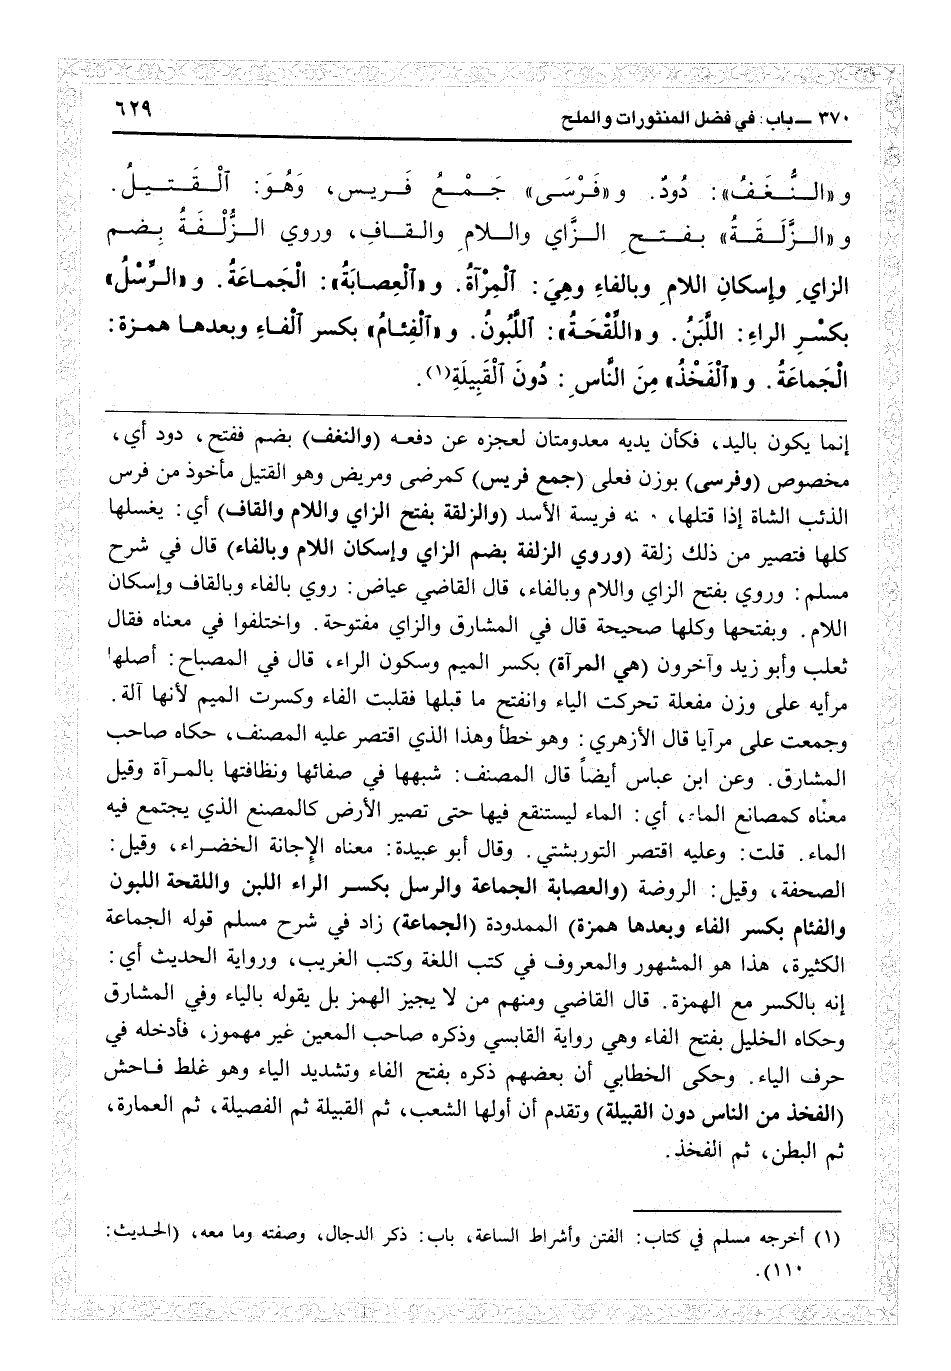 ٣٧٠ ــ باب: في فضل المنثورات والملح ٦٢٩
و «النُّغَفُ»: دُودٌ. و «فَرْسَى» جَمْعُ فَرِيس، وَهُوَ: ٱلْقَتِيلُ.
و «الزَّلَقَةُ» بفتحِ الزَّاي واللامِ والقاف، وروي الزُّلْفَةُ بِضم
الزاي وإسكانِ اللامِ وبالفاءِ وهِيَ: ٱلْمِرْآةُ. و «ٱلْعِصابَةُ»: الْجَماعَةُ. و «الرِّسْلُ»
بكسْرِ الراءِ: اللَّبَنُ. و «اللِّقْحَةُ»: ٱللَّبُونُ. و «ٱلْفِئامُ» بكسر ٱلْفاءِ وبعدها همزة:
الْجَماعَةُ. و «ٱلْفَخْذُ» مِنَ النَّاسِ: دُونَ ٱلْقَبِيلَةِ(١).
إنما يكون باليد، فكأن يديه معدومتان لعجزه عن دفعه (والنغف) بضم ففتح، دود أي،
مخصوص (وفرسى) بوزن فعلى (جمع فريس) كمرضى ومريض وهو القتيل مأخوذ من فرس
الذئب الشاة إذا قتلها، نه فريسة الأسد (والزلقة بفتح الزاي واللام والقاف) أي: يغسلها
كلها فتصير من ذلك زلقة (وروي الزلفة بضم الزاي وإسكان اللام وبالفاء) قال في شرح
مسلم: وروي بفتح الزاي واللام وبالفاء، قال القاضي عياض: روي بالفاء وبالقاف وإسكان
اللام. وبفتحها وكلها صحيحة قال في المشارق والزاي مفتوحة. واختلفوا في معناه فقال
ثعلب وأبو زيد وآخرون (هي المرآة) بكسر الميم وسكون الراء، قال في المصباح: أصلها
مرأيه على وزن مفعلة تحركت الياء وانفتح ما قبلها فقلبت الفاء وكسرت الميم لأنها آلة.
وجمعت على مرآيا قال الأزهري: وهو خطأ وهذا الذي اقتصر عليه المصنف، حكاه صاحب
المشارق. وعن ابن عباس أيضاً قال المصنف: شبهها في صفائها ونظافتها بالمرآة وقيل
معناه كمصانع الماء، أي: الماء ليستنقع فيها حتى تصير الأرض كالمصنع الذي يجتمع فيه
الماء. قلت: وعليه اقتصر التوربشتي. وقال أبو عبيدة: معناه الإجانة الخضراء، وقيل:
الصحفة، وقيل: الروضة (والعصابة الجماعة والرسل بكسر الراء اللبن واللقحة اللبون
والفئام بكسر الفاء وبعدها همزة) الممدودة (الجماعة) زاد في شرح مسلم قوله الجماعة
الكثيرة، هذا هو المشهور والمعروف في كتب اللغة وكتب الغريب، ورواية الحديث أي:
إنه بالكسر مع الهمزة. قال القاضي ومنهم من لا يجيز الهمز بل يقوله بالياء وفي المشارق
وحكاه الخليل بفتح الفاء وهي رواية القابسي وذكره صاحب المعين غير مهموز، فأدخله في
حرف الياء. وحكى الخطابي أن بعضهم ذكره بفتح الفاء وتشديد الياء وهو غلط فاحش
(الفخذ من الناس دون القبيلة) وتقدم أن أولها الشعب، ثم القبيلة ثم الفصيلة، ثم العمارة،
ثم البطن، ثم الفخذ.
(١) أخرجه مسلم في كتاب: الفتن وأشراط الساعة، باب: ذكر الدجال، وصفته وما معه، (الحديث:
١١٠).